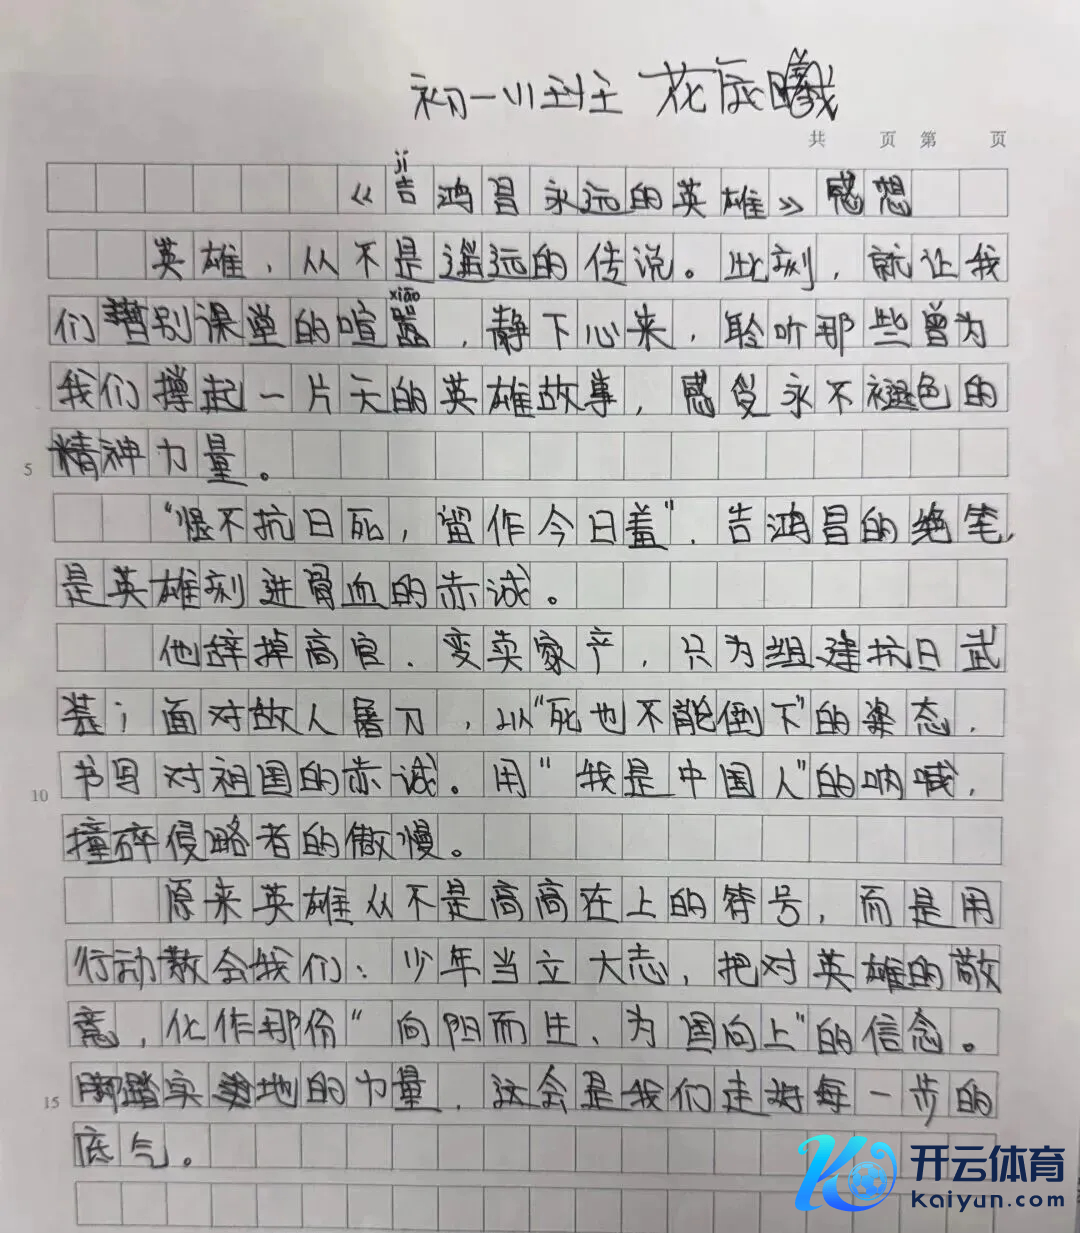 初一11班 花辰曦
共 页 第 页
jí
《吉鸿昌永远的英雄》感想
英雄，从不是遥远的传说。此刻，就让我
xiāo
们暂别课堂的喧嚣，静下心来，聆听那些曾为
我们撑起一片天的英雄故事，感受永不褪色的
5 精神力量。
“恨不抗日死，留作今日羞”，吉鸿昌的绝笔，
是英雄刻进骨血的赤诚。
他辞掉高官，变卖家产，只为组建抗日武
装；面对敌人屠刀，以“死也不能倒下”的姿态，
10 书写对祖国的赤诚。用“我是中国人”的呐喊，
撞碎侵略者的傲慢。
原来英雄从不是高高在上的符号，而是用
行动教会我们：少年当立大志，把对英雄的敬
意，化作那份“向阳而生，为国向上”的信念。
15 脚踏实地的力量，这会是我们走好每一步的
底气。
开云体育
Kaiyun.com